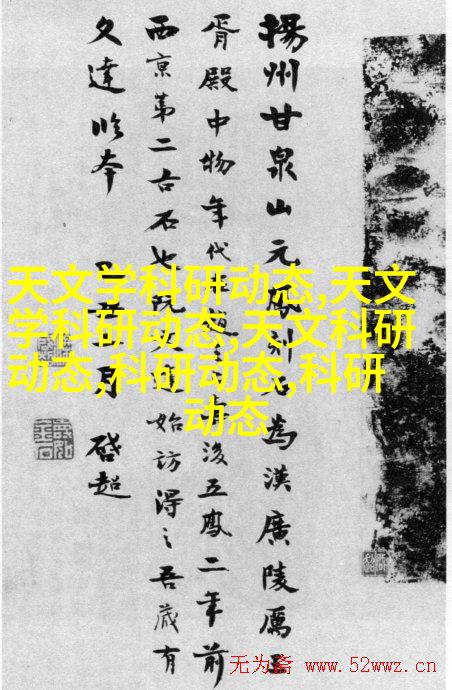 揚州甘泉山元鳳刻石為漢廣陵厲王
胥殿中物年代後五鳳二年前
西京第二古石也始訪得之吾藏有
久達臨本 月 啓超
天文学科研动态,天文
学科研动态,天文科研
动态,科研动态,科研
动态
无为斋 www.52wwz.cn